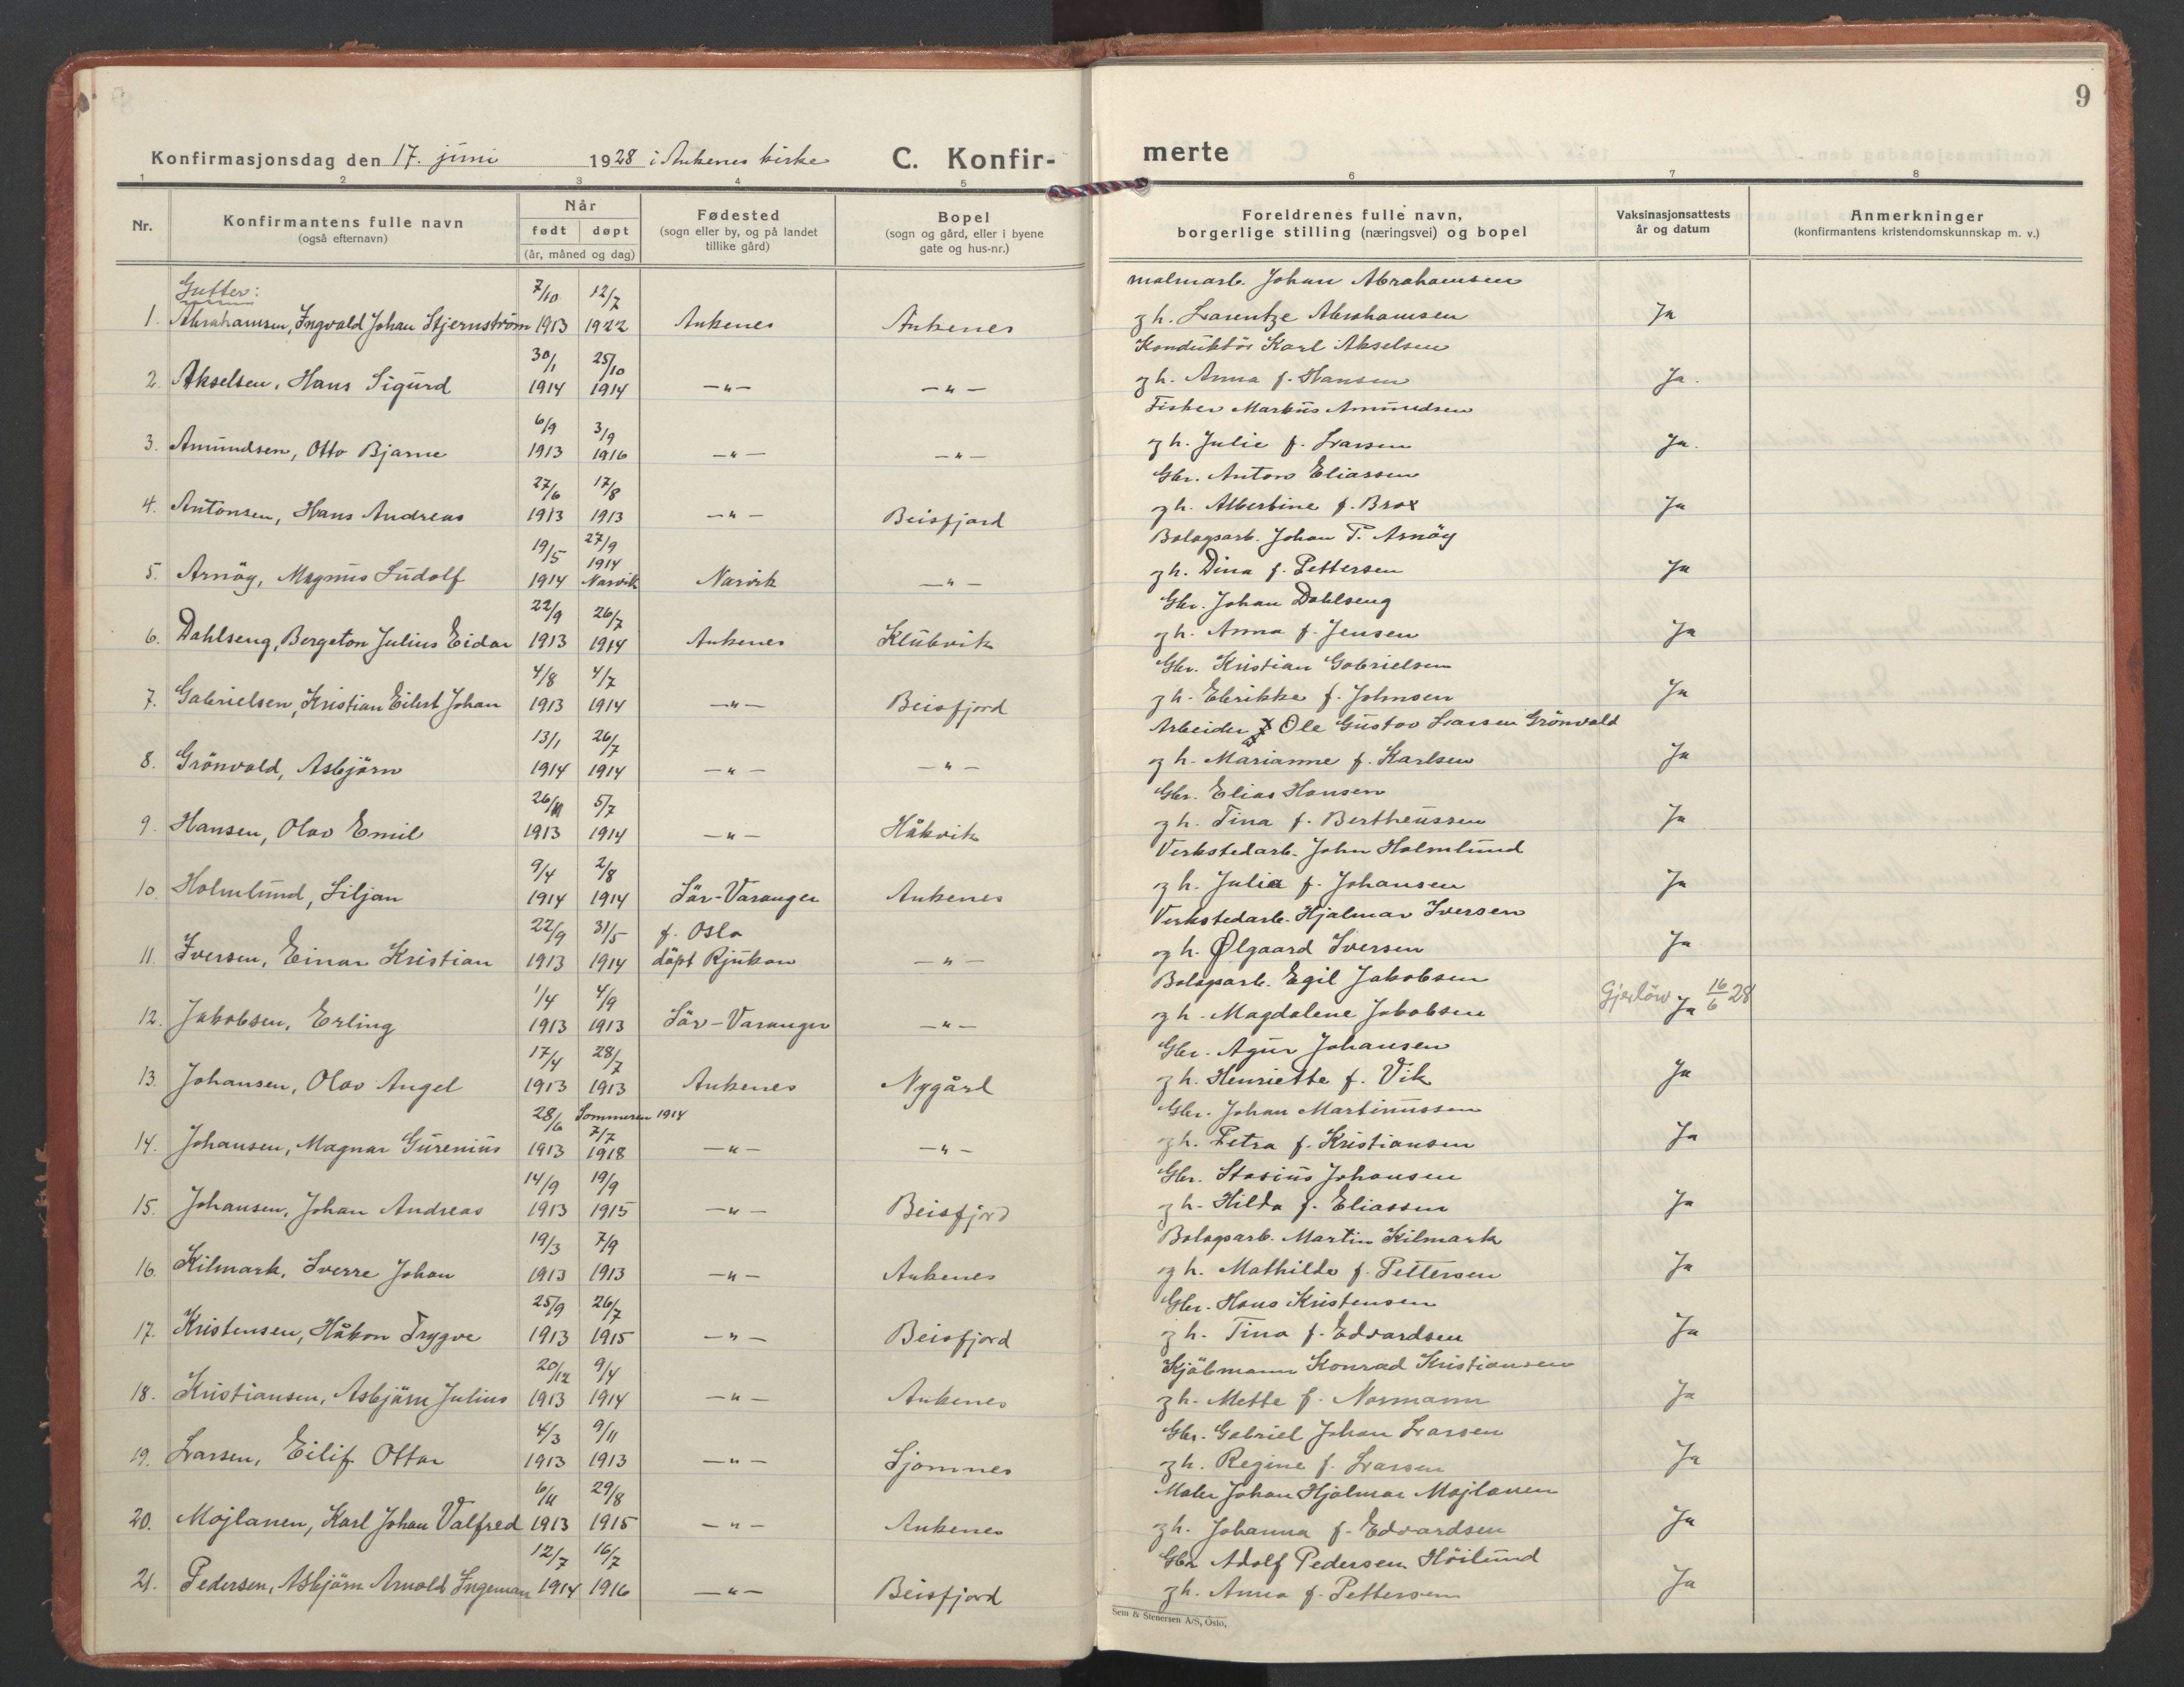 9
Konfirmasjonsdag den 17. juni 1928 i Ankenes kirke C. Konfir- merte
1 2 3 4 5 6 7 8
Nr. Konfirmantens fulle navn (også efternavn) Når født døpt (år, måned og dag) Fødested (sogn eller by, og på landet tillike gård) Bopel (sogn og gård, eller i byene gate og hus-nr.) Foreldrenes fulle navn, borgerlige stilling (næringsvei) og bopel Vaksinasjonsattests år og datum Anmerkninger (konfirmantens kristendomskunnskap m. v.)
Gutter: 7/10 12/7 malmarb. Johan Abrahamsen
1. Abrahamsen, Ingvald Johan Stjernström 1913 1922 Ankenes Ankenes og h. Larentze Abrahamsen Ja
30/1 25/10 Konduktör Karl Akselsen
2. Akselsen, Hans Sigurd 1914 1914 —"— —"— og h. Anna f. Hansen Ja.
6/9 3/9 Fisker Markus Amundsen
3. Amundsen, Otto Bjarne 1913 1916 —"— —"— og h. Julie f. Larsen Ja.
27/6 17/8 Gbr. Anton Eliassen
4. Antonsen, Hans Andreas 1913 1913 —"— Beisfjord og h. Albertine f. Brox Ja
19/5 27/9 1914 Bolagsarb. Johan P. Arnöy
5. Arnöy, Magnus Ludolf 1914 Narvik Narvik —"— og h. Dina f. Pettersen Ja
22/9 26/7 Gbr. Johan Dahlseng
6. Dahlseng, Bergeton Julius Eidar 1913 1914 Ankenes Klubvik og h. Anna f. Jensen Ja
4/8 4/7 Gbr. Kristian Gabrielsen
7. Gabrielsen, Kristian Eilert Johan 1913 1914 —"— Beisfjord og h. Elerikke f. Johnsen Ja
13/1 26/7 Arbeider Ole Gustav Larsen Grönvald
8. Grönvald, Asbjörn 1914 1914 —"— —"— og h. Marianne f. Karlsen Ja
26/11 5/7 Gbr. Elias Hansen
9. Hansen, Olav Emil 1913 1914 —"— Håkvik og h. Tina f. Bertheussen Ja
9/4 2/8 Verkstedarb. John Holmlund
10. Holmlund, Siljan 1914 1914 Sör-Varanger Ankenes og h. Julia f. Johansen Ja
22/9 31/5 f. Oslo Verkstedarb. Hjalmar Iversen
11. Iversen, Einar Kristian 1913 1914 döpt Rjukan —"— og h. Ølgaard Iversen Ja
1/4 4/9 Bolagsarb. Egil Jakobsen
12. Jakobsen, Erling 1913 1913 Sör-Varanger —"— og h. Magdalene Jakobsen Gjerlöw Ja 16/6 28
17/4 28/7 Gbr. Agur Johansen
13. Johansen, Olav Angel 1913 1913 Ankenes Nygård og h. Henriette f. Vik Ja
28/6 Sommeren 1914 7/7 Gbr. Johan Martinussen
14. Johansen, Magnar Gurenius 1913 1918 —"— —"— og h. Petra f. Kristiansen Ja
14/9 19/9 Gbr. Stasius Johansen
15. Johansen, Johan Andreas 1913 1915 —"— Beisfjord og h. Hilda f. Eliassen Ja
19/3 7/9 Bolagsarb. Martin Kilmark
16. Kilmark, Sverre Johan 1913 1913 —"— Ankenes og h. Mathilde f. Pettersen Ja
25/9 26/7 Gbr. Hans Kristensen
17. Kristensen, Håkon Trygve 1913 1915 —"— Beisfjord og h. Tina f. Edvardsen Ja
20/12 9/4 Kjöbmann Konrad Kristiansen
18. Kristiansen, Asbjörn Julius 1913 1914 —"— Ankenes og h. Mette f. Normann Ja
4/3 9/11 Gbr. Gabriel Johan Larsen
19. Larsen, Eilif Ottar 1913 1913 —"— Sjomnes og h. Regine f. Larsen Ja
6/11 29/8 Maler Johan Hjalmar Mojlanen
20. Mojlanen, Karl Johan Valfred 1913 1915 —"— Ankenes og h. Johanna f. Edvardsen Ja
12/7 16/7 Gbr Adolf Pedersen Höilund
21. Pedersen, Asbjörn Arnold Ingeman 1914 1916 —"— Beisfjord og h. Anna f. Pettersen Ja
Sem & Stenersen A/S, Oslo.